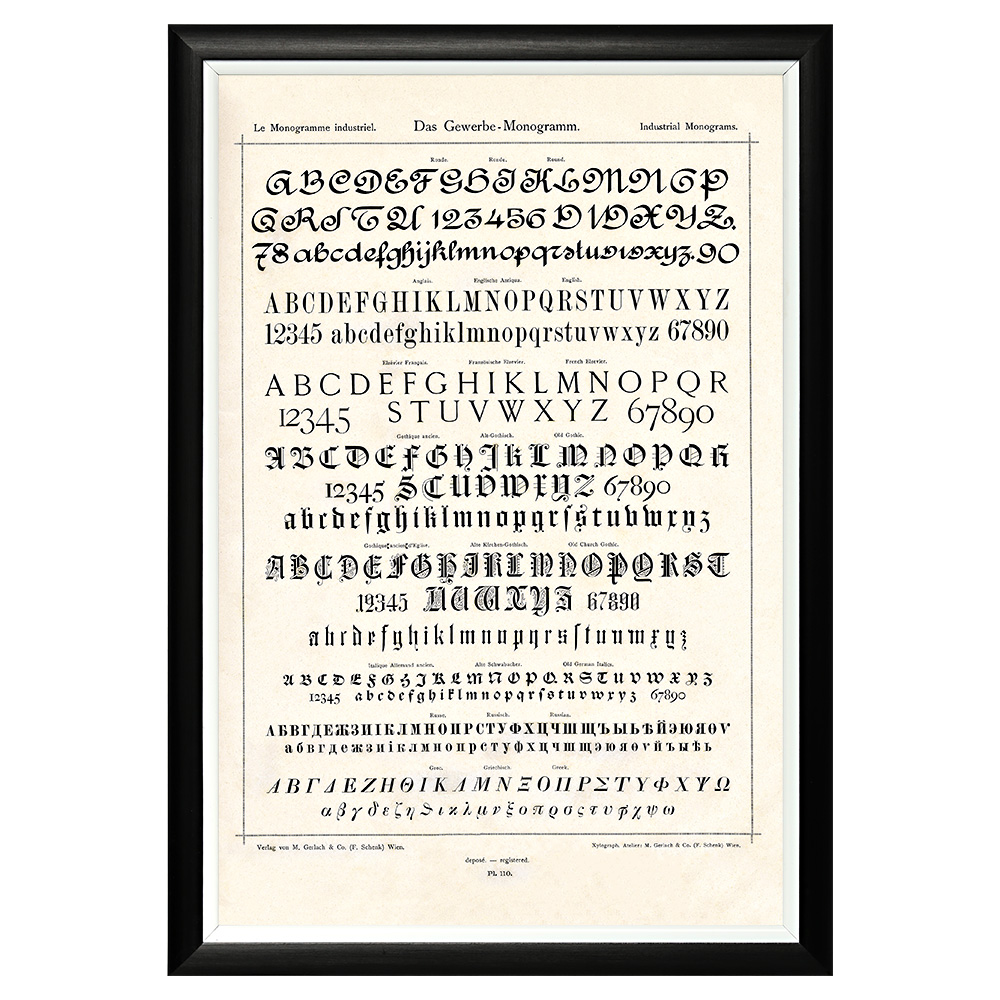 Le Monogramme industriel. Das Gewerbe-Monogramm. Industrial Monograms.
Ronde. Ronde. Round.
ABCDEFGHIJKLMNOP
QRSTU 123456 VWXYZ.
78 abcdefghijklmnopqrstuvwxyz. 90
Anglais. Englische Antiqua. English.
ABCDEFGHIKLMNOPQRSTUVWXYZ
12345 abcdefghiklmnopqrstuvwxyz 67890
Elzévier Français. Französische Elzevier. French Elzevier.
ABCDEFGHIKLMNOPQR
12345 STUVWXYZ 67890
Gothique ancien. Alt-Gothisch. Old Gothic.
ABCDEFGHJKLMNOPQR
12345 STUVWXYZ 67890
abcdefghiklmnopqrſstuvwxyz
Gothique ancien d'Eglise. Alte Kirchen-Gothisch. Old Church Gothic.
ABCDEFGHJKLMNOPQRST
12345 UVWXYZ 67890
abcdefghiklmnopqrsſtuvwxyz
Italique Allemand ancien. Alte Schwabacher. Old German Italics.
ABCDEFGHJKLMNOPQRSTUVWXYZ
12345 abcdefghiklmnopqrſstuvwxyz 67890
Russe. Russisch. Russian.
АБВГДЕЖЗИІКЛМНОПРСТУФХЦЧШЩЪЫЬѢЙЭЮЯѲѴ
абвгдежзиіклмнопрстуфхцчшщэюяѳѵйъыѣь
Grec. Griechisch. Greek.
ΑΒΓΔΕΖΗΘΙΚΛΜΝΞΟΠΡΣΤΥΦΧΨΩ
αβγδεζηϑικλμνξοπρσςτυφχψω
Verlag von M. Gerlach & Co. (F. Schenk) Wien. Xylograph. Atelier: M. Gerlach & Co. (F. Schenk) Wien.
deposé. — registered.
Pl. 110.